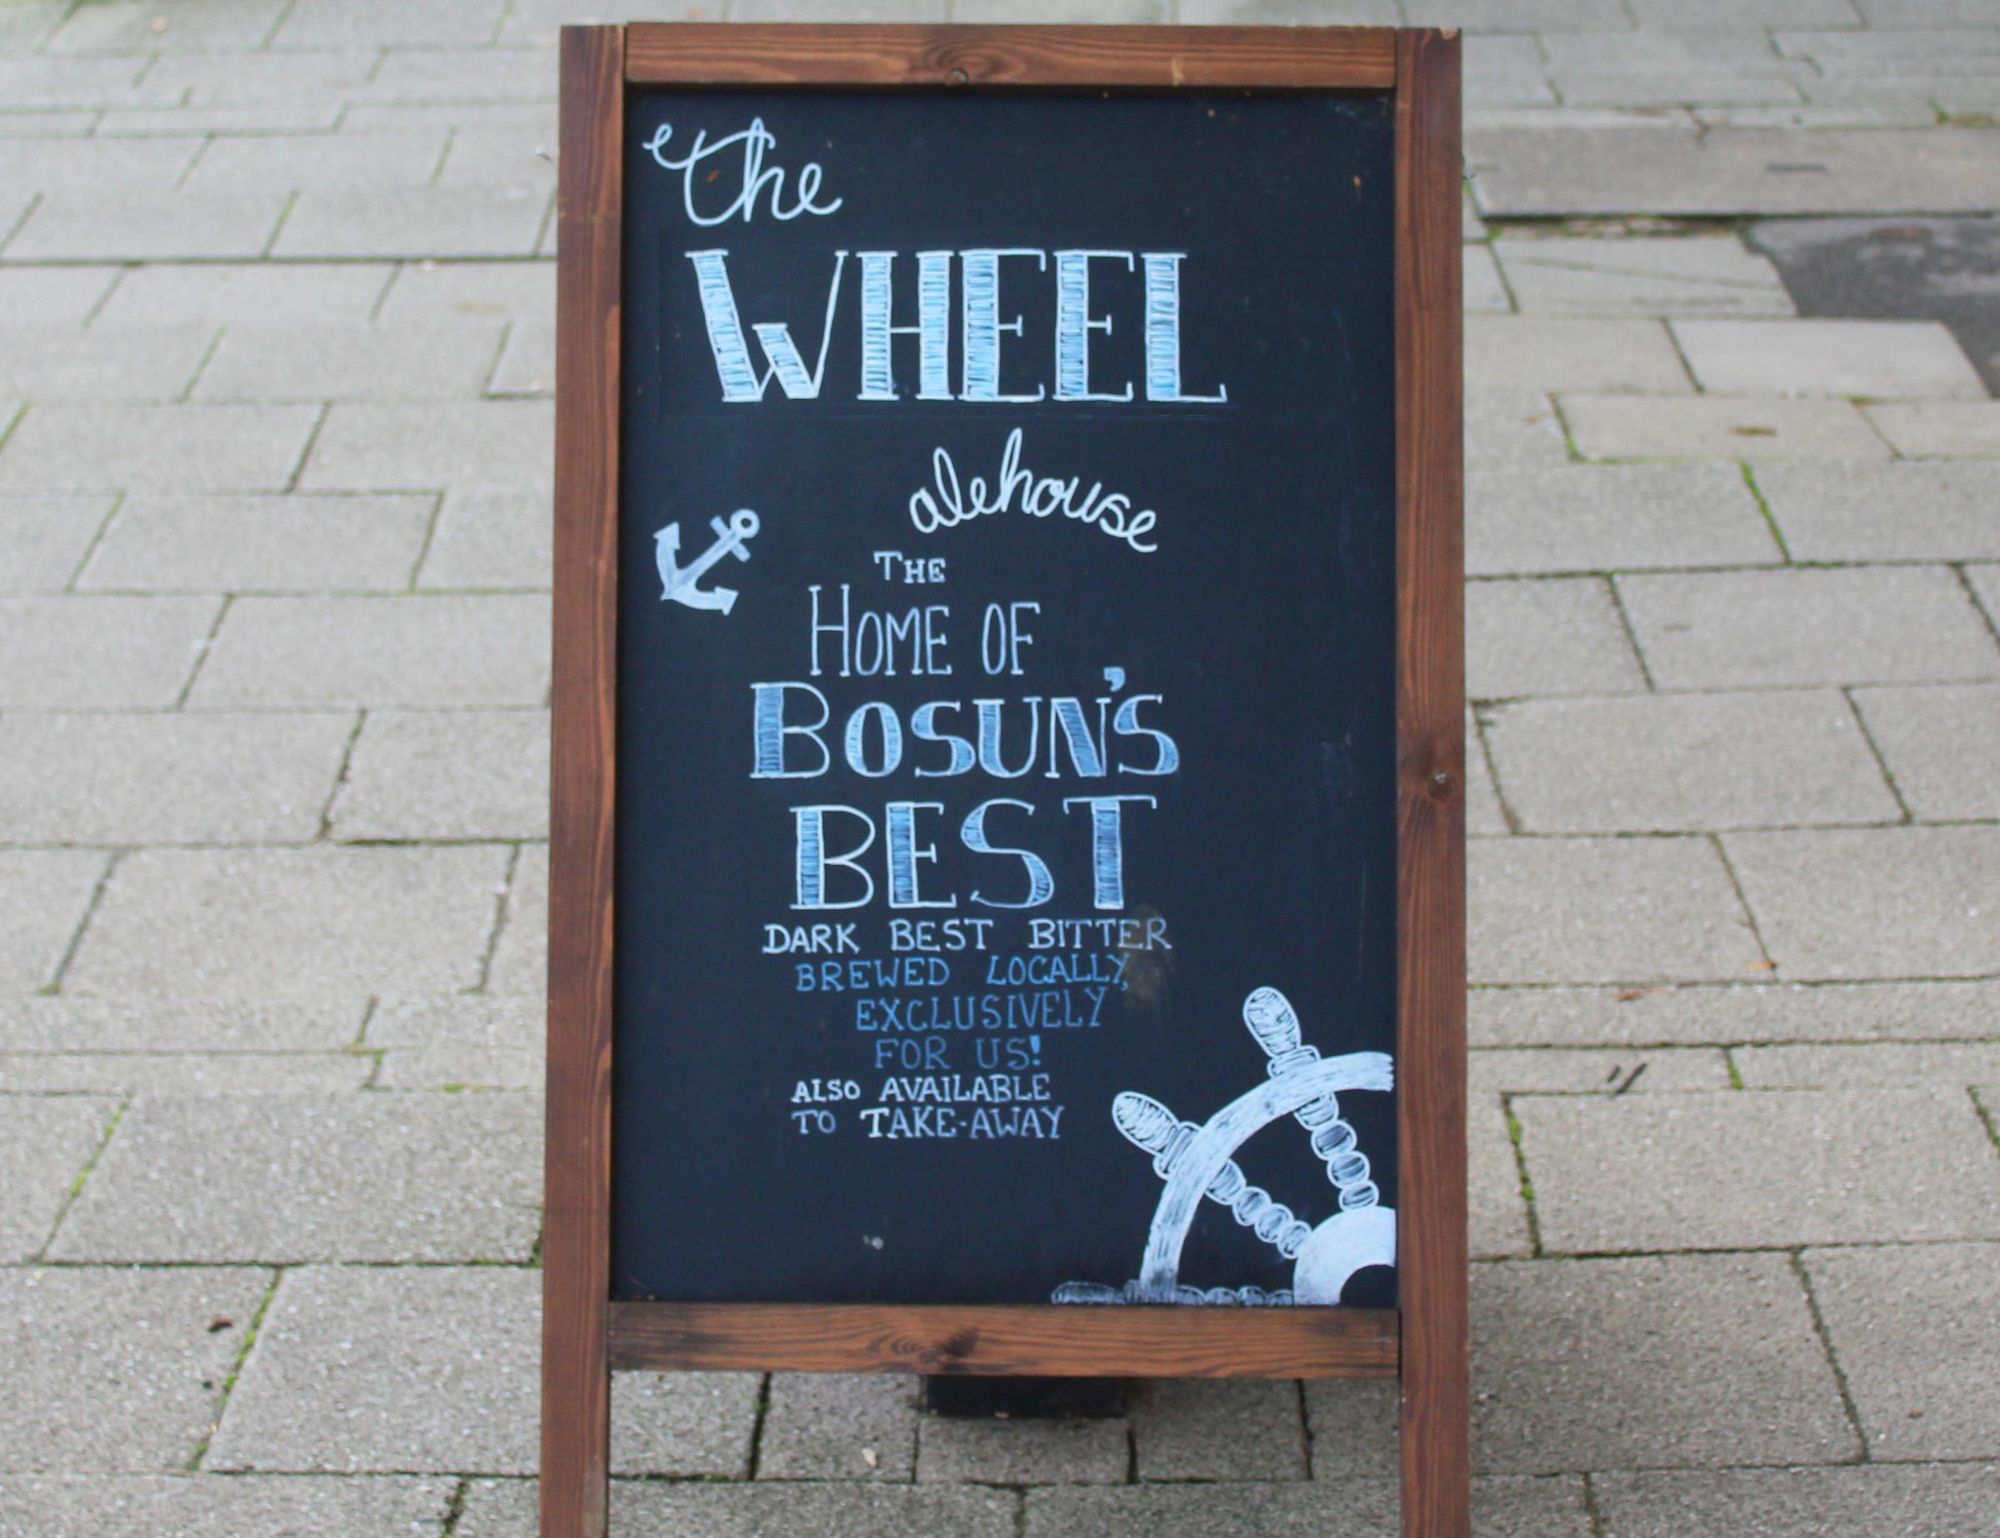 the
WHEEL
alehouse
THE
HOME OF
BOSUN'S
BEST
DARK BEST BITTER
BREWED LOCALLY,
EXCLUSIVELY
FOR US!
ALSO AVAILABLE
TO TAKE-AWAY